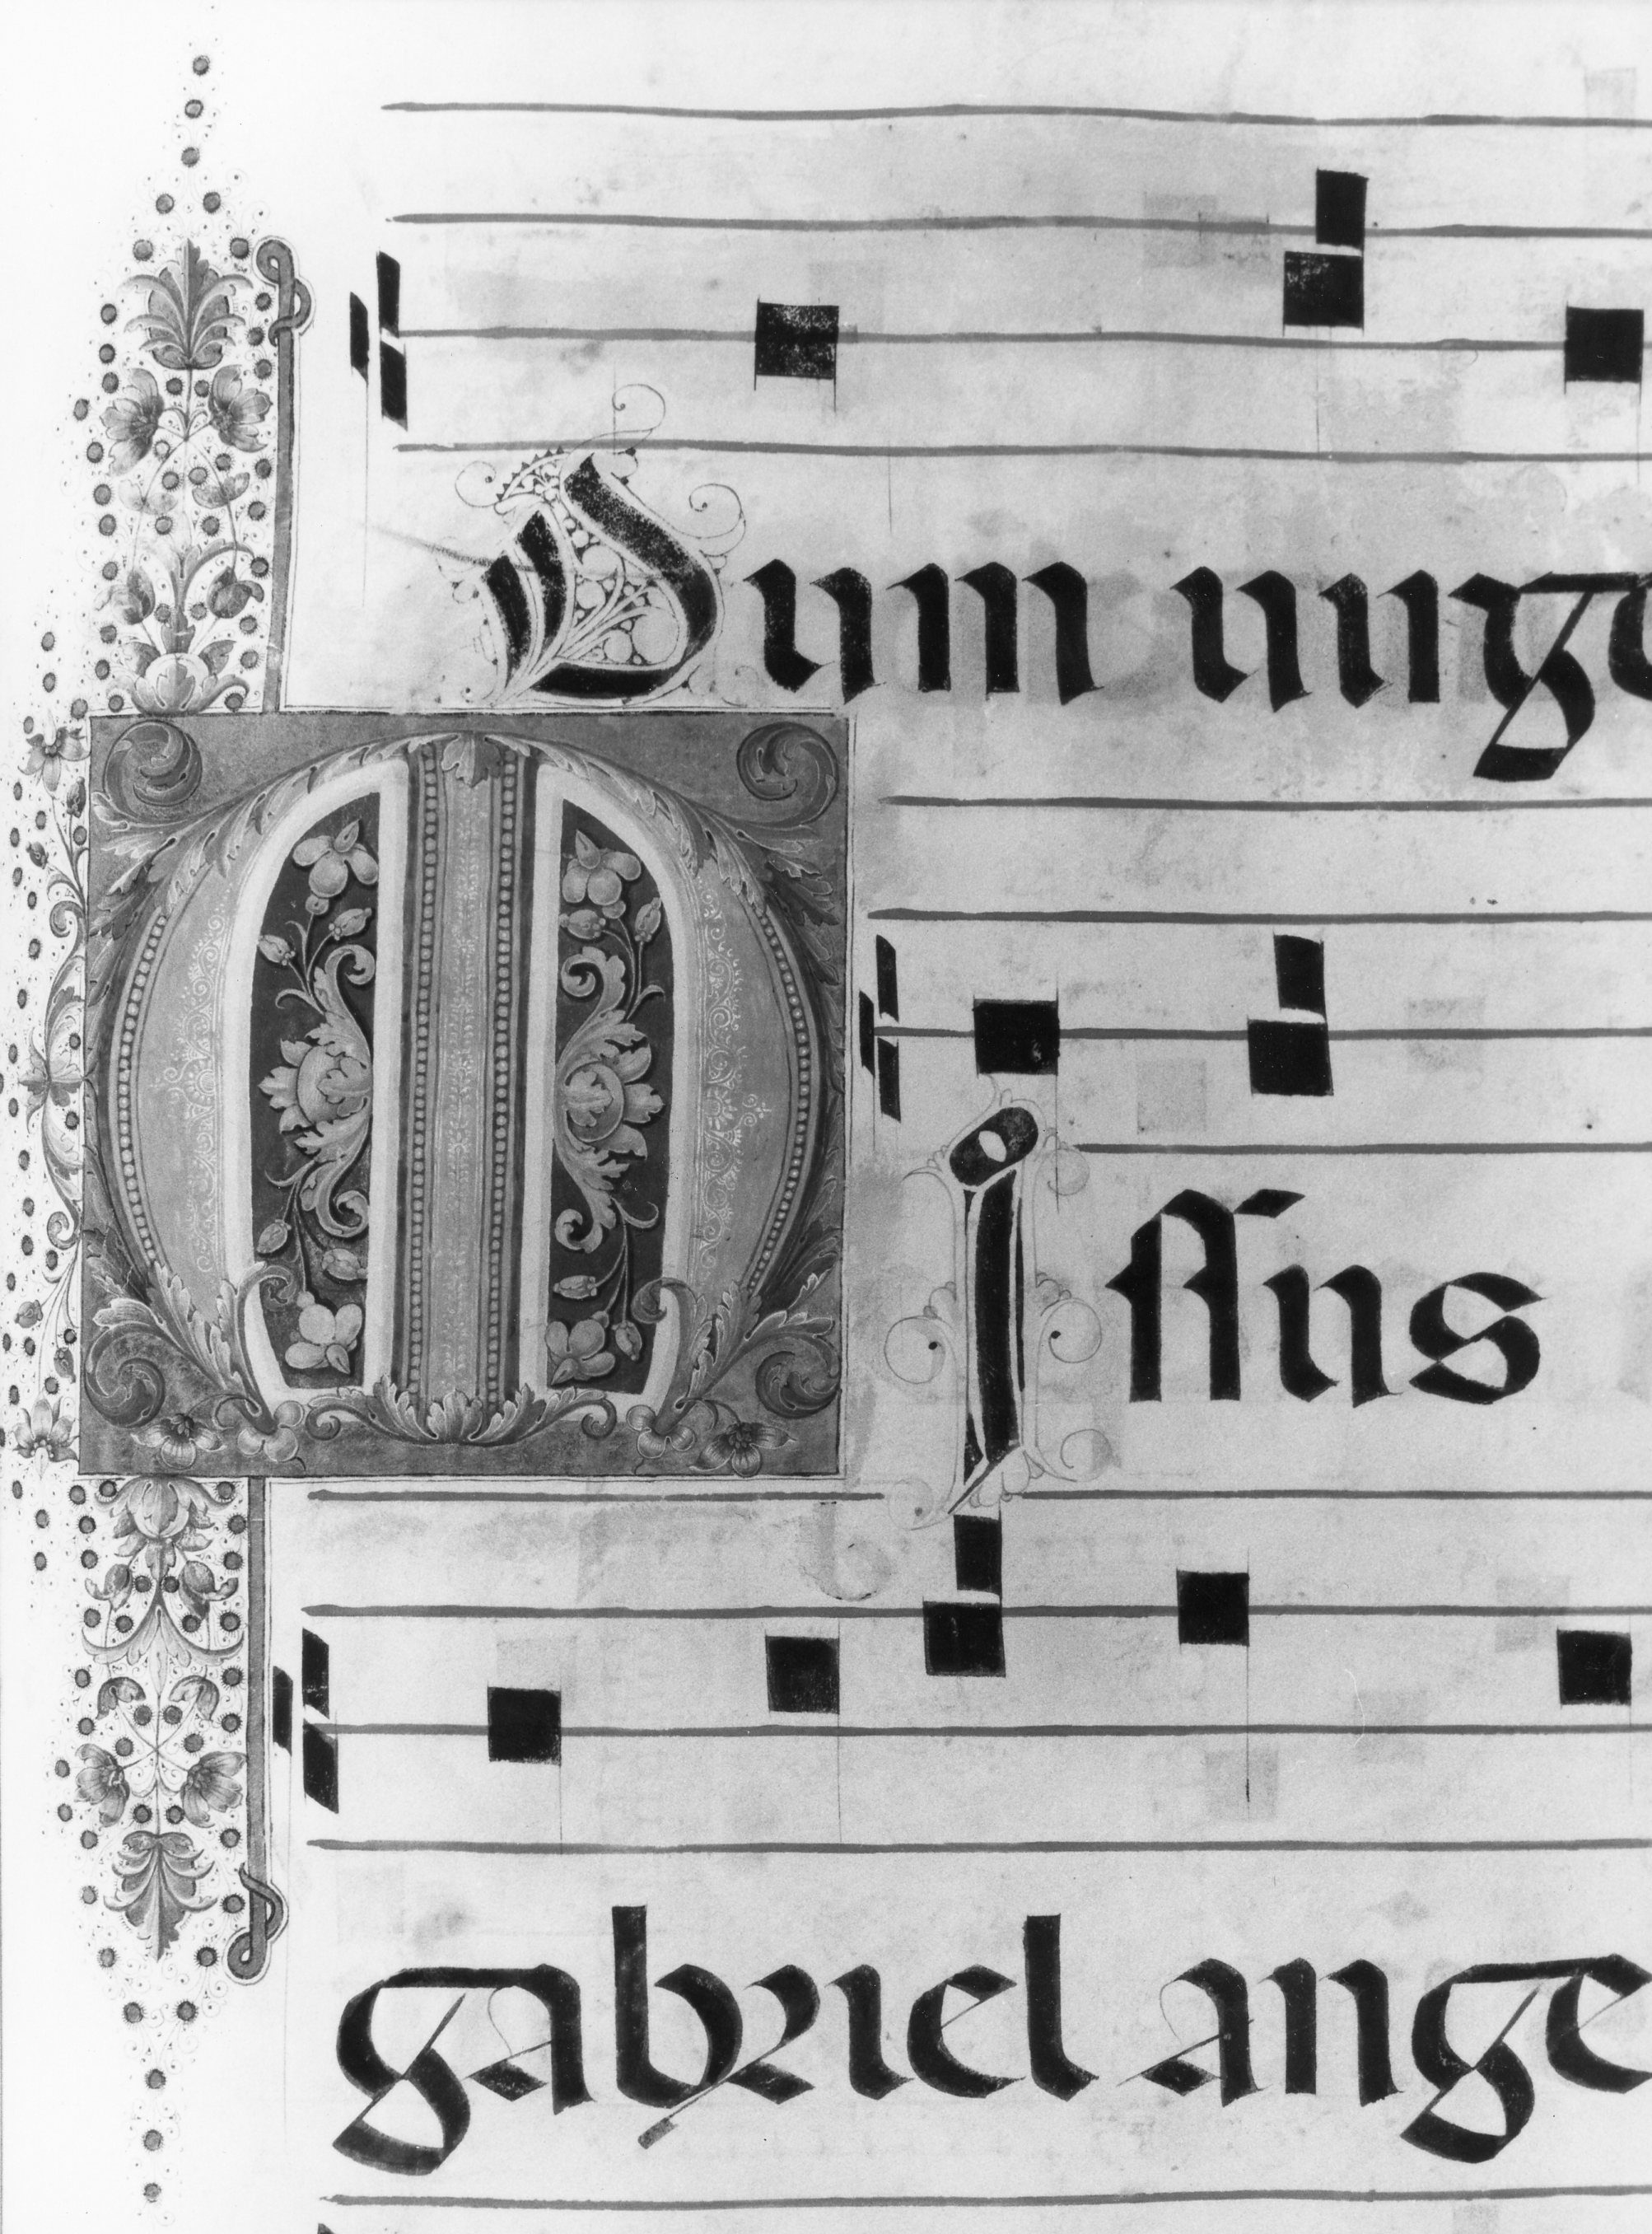 Dum uirg
MIssus
gabriel ange